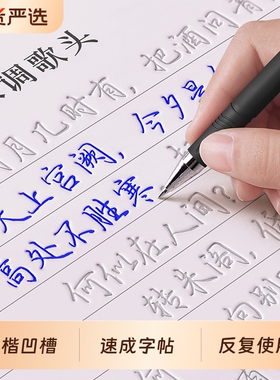 严选
调歌头
月几时有，把酒问
天上宫阙，今夕是
高处不胜寒
何似在人间？
转朱阁，
向别
楷凹槽
速成字帖
反复使用